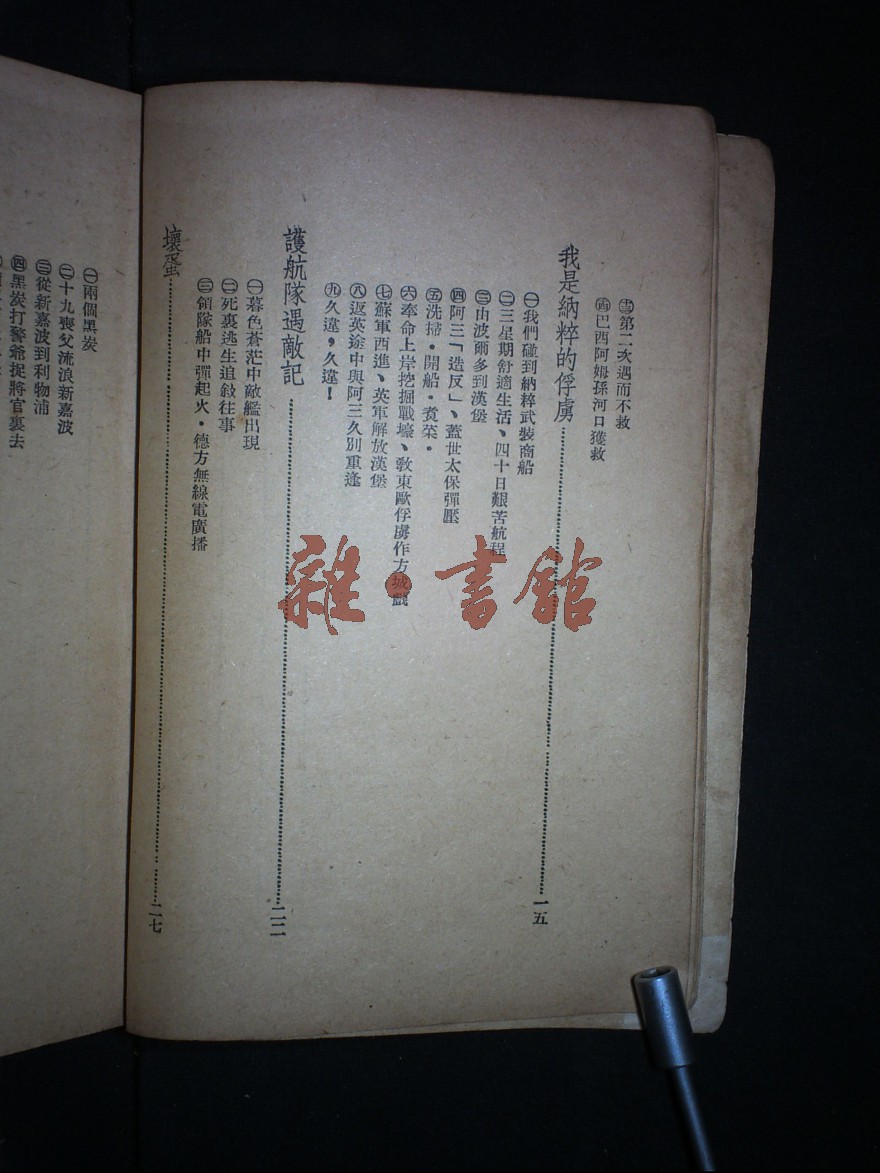 ㊂第二次遇而不救
㊃巴西阿姆孫河口獲救
我是納粹的俘虜……一五
㊀我們碰到納粹武裝商船
㊁三星期舒適生活、四十日艱苦航程
㊂由波爾多到漢堡
㊃阿三「造反」、蓋世太保彈壓
㊄洗掃・開船・煑菜・
㊅奉命上岸挖掘戰壕、敎東歐俘虜作方城戲
㊆蘇軍西進、英軍解放漢堡
㊇返英途中與阿三久別重逢
㊈久違，久違！
護航隊遇敵記……二二
㊀暮色蒼茫中敵艦出現
㊁死裏逃生追敍往事
㊂領隊船中彈起火・德方無線電廣播
壞蛋……二七
㊀兩個黑炭
㊁十九喪父流浪新嘉波
㊂從新嘉波到利物浦
㊃黑炭打警爺捉將官裏去
雜・書館